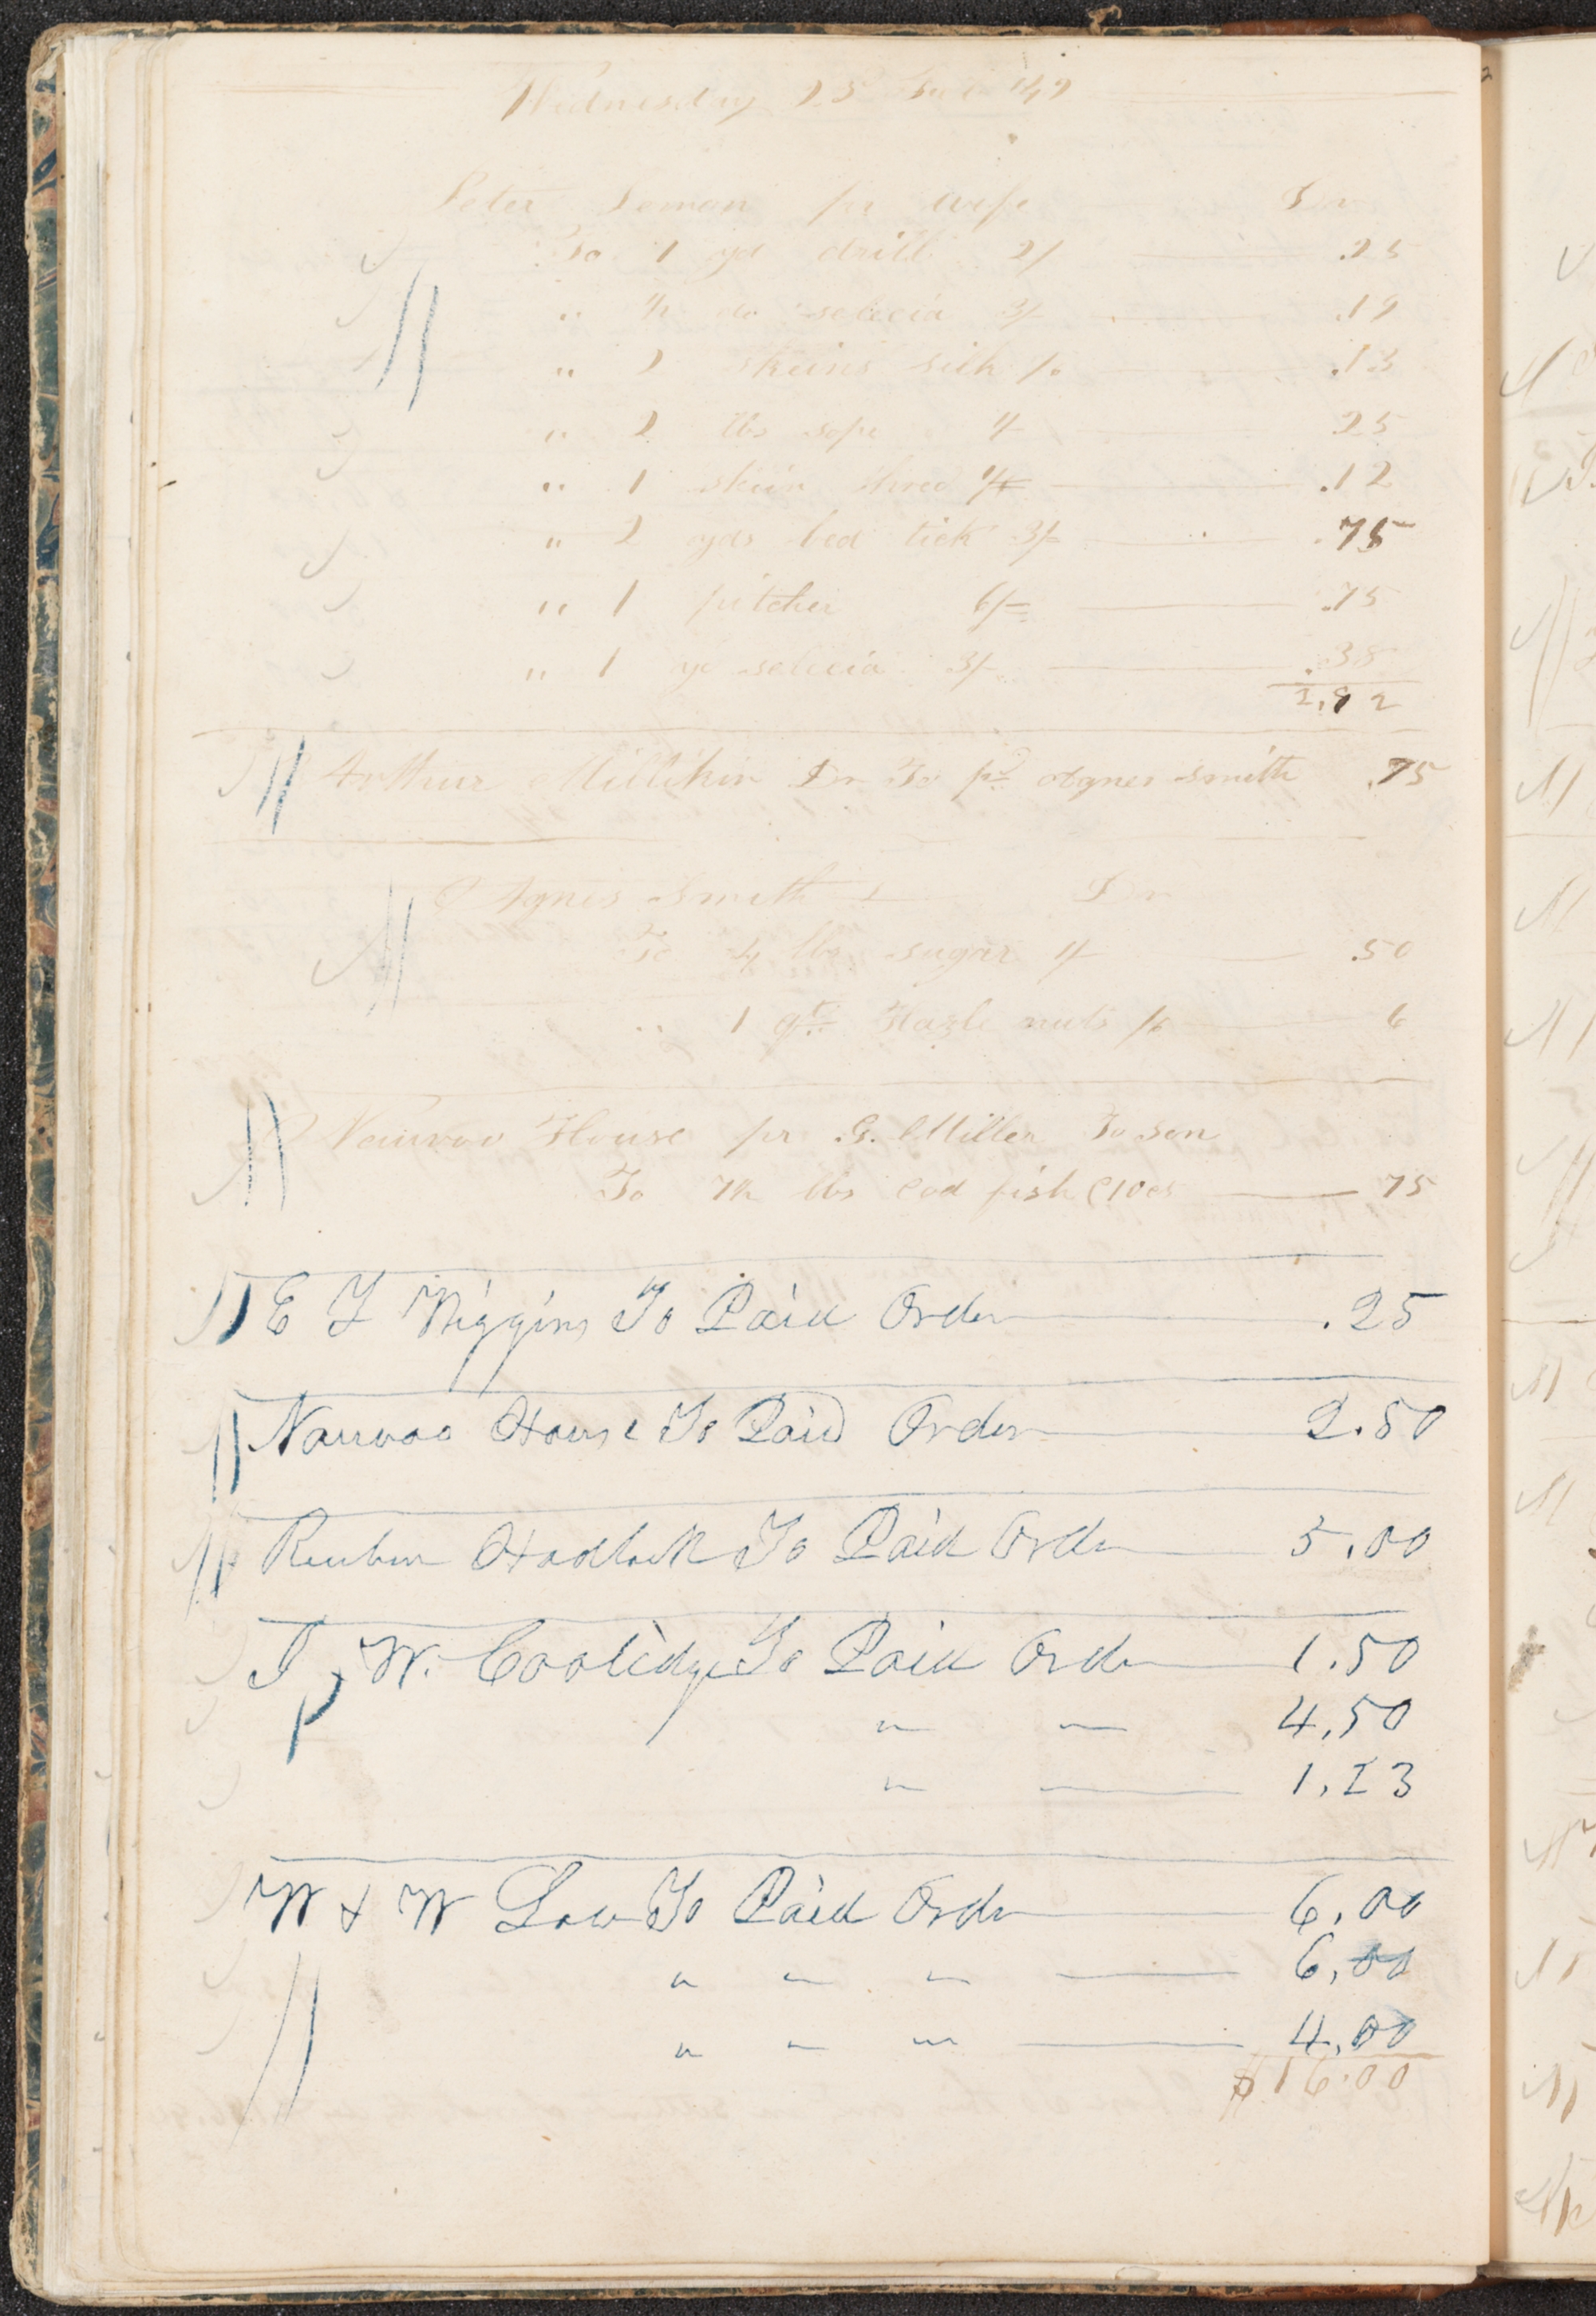 Wednesday 25
Peter per wife Dr
To 1 yd drill 2/ .25
" 1/2 do selecia 3/ .19
" 2 skeins silk /6 .13
" 2 lbs sope 1/ 25
" 1 skein thred .12
" 2 yds bed tick 3/ .75
" 1 pitcher 6/ .75
" 1 yd selecia 3/ .38
2,82
Arthur Millikin Dr To pd Agnes Smith .75
Agnes Smith Dr
To 4 lbs sugar 1/ .50
" 1 qt Hazle nuts /6 6
Nauvoo House pr G. Miller To son
To 7½ lbs Cod fish @10cs 75
E J Wiggins To Paid Order .25
Nauvoo House To Paid Order 2.50
Reuben Hadlock To Paid Order 5.00
J W. Coolidge To Paid Order 1.50
" " 4,50
" 1,13
W & W Law To Paid Order 6,00
" " " 6,00
" " " 4,00
$16.00